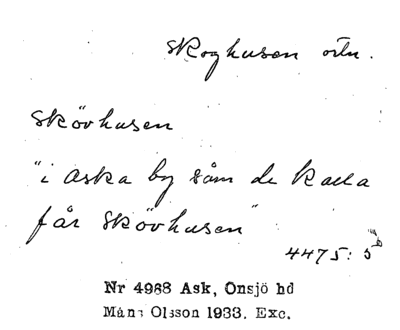 Skoghusen ortn.
Skövhusen
"i aska by som de kalla
får Skövhusen"
4475: 5
Nr 4988 Ask, Onsjö hd
Måns Olsson 1933. Exc.